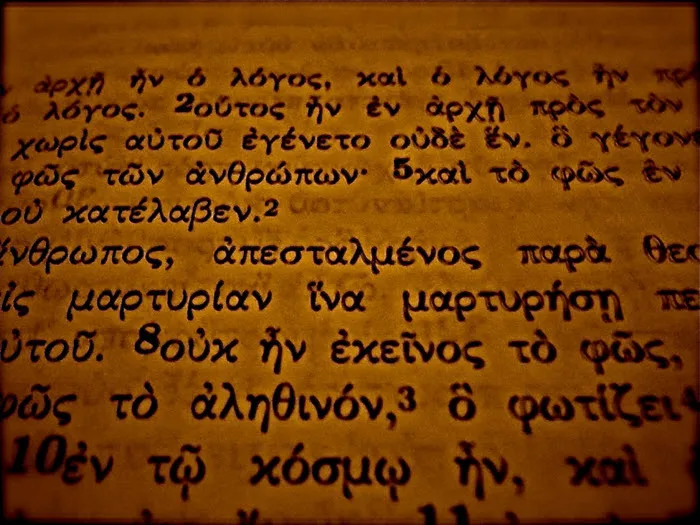 ἀρχῇ ἦν ὁ λόγος, καὶ ὁ λόγος ἦν πρ
ὁ λόγος. 2οὗτος ἦν ἐν ἀρχῇ πρὸς τὸν
χωρὶς αὐτοῦ ἐγένετο οὐδὲ ἕν. ὃ γέγον
φῶς τῶν ἀνθρώπων· 5καὶ τὸ φῶς ἐν
οὐ κατέλαβεν.2
ἄνθρωπος, ἀπεσταλμένος παρὰ θεο
εἰς μαρτυρίαν ἵνα μαρτυρήσῃ πε
αὐτοῦ. 8οὐκ ἦν ἐκεῖνος τὸ φῶς,
φῶς τὸ ἀληθινόν,3 ὃ φωτίζει4
10ἐν τῷ κόσμῳ ἦν, καὶ
11